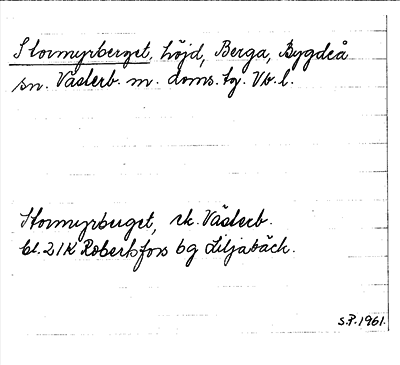 Stormyrberget, höjd, Berga, Bygdeå
sn. Västerb. m. doms. tg. Vb. l.
Stormyrberget, ek. Västerb.
bl. 21K Robertsfors 6g Liljabäck.
S.P. 1961.